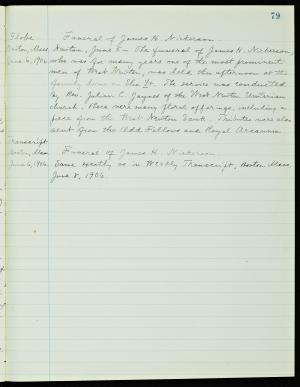 79
Globe
Boston, Mass.
June 6, 1906
Funeral of James H. Nickerson.
Newton, June 5 — The funeral of James H. Nickerson,
who was for many years one of the most prominent
men of West Newton, was held this afternoon at the
family home on Elm St. The service was conducted
by Rev. Julian C. Jaynes of the West Newton Unitarian
church. There were many floral offerings, including a
piece from the West Newton Bank. Tributes were also
sent from the Odd Fellows and Royal Arcanum.
Transcript
Boston, Mass.
June 6, 1906.
Funeral of James H. Nickerson
Same exactly as in Weekly Transcript, Boston, Mass.
June 8, 1906.